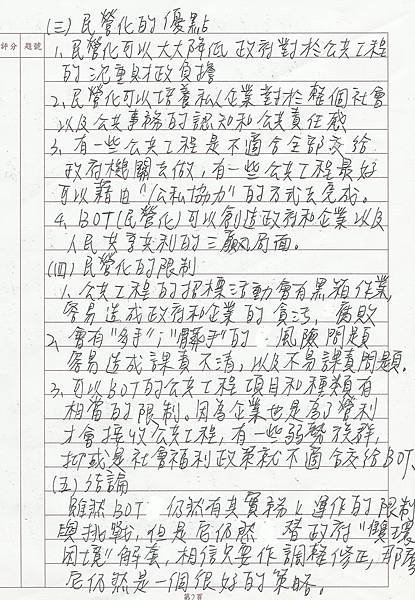 (三)民營化的優點
評分 題號
1、民營化可以大大降低政府對於公共工程
的沉重財政負擔
2、民營化可以培養私企業對於整個社會
以及公共事務的認知和公共責任感
3、有一些公共工程是不適合全部交給
政府機關去做,有一些公共工程最好
可以藉由"公私協力"的方式去完成。
4、BOT(民營化)可以創造政府和企業以及
人民共享共利的三贏局面。
(四)民營化的限制
1、公共工程的招標活動會有黑箱作業,
容易造成政府和企業的貪污,腐敗
2、會有"多手";"髒手"的 風險問題
容易造成課責不清,以及不易課責問題.
3、可以BOT的公共工程項目和種類有
相當的限制。因為企業也是為了營利
才會接收公共工程,有一些弱勢族群,
抑或是社會福利政策就不適合交給BOT、
(五)結論
雖然BOT 仍然有其實務上運作的限制
與挑戰,但是它仍然 替政府"雙環
困境"解套,相信只要作調整修正,那麼
它仍然是一個很好的策略。
第7頁